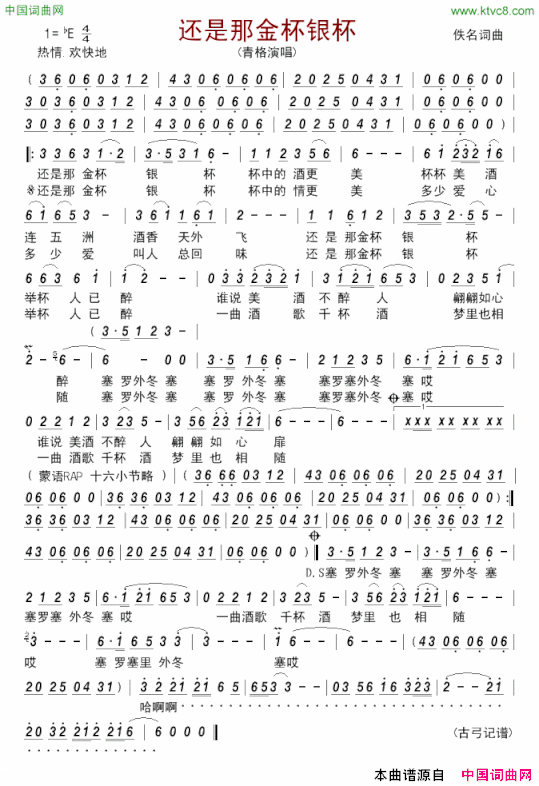 中国词曲网
www.ktvc8.com
还是那金杯银杯
1= ♭E 4/4
热情.欢快地
(青格演唱)
佚名词曲
( 3 6 0 6 0 6 0 3 1 2 | 4 3 0 6 0 6 0 6 0 6 | 2 0 2 5 0 4 3 1 | 0 6 0 6 0 6 0 0 |
3 0 3 6 0 3 1 2 | 4 3 0 6 0 6 0 6 0 6 | 2 0 2 5 0 4 3 1 | 0 6 0 6 0 6 0 0 |
3 0 3 6 0 3 1 2 | 4 3 0 6 0 6 0 6 0 6 | 2 0 2 5 0 4 3 1 | 0 6 0 6 0 6 0 0 )
𝄆 3 3 6 3 1·2 | 3·5 3 1 6 - | 1 1 2 3 5 6 | 6 - - - | 6 6 1 2 3 2 1 6
还是那 金杯 银 杯 杯中的 酒更 美 杯杯 美 酒
※还是那 金杯 银 杯 杯中的 情更 美 多少 爱 心
6 1 6 5 3 - | 3 6 1 1 6 1 | 2 - - - | 1 - - - | 3 5 3 2·5 5 -
连 五 洲 酒香 天外 飞 还 是 那金杯 银 杯
多 少 爱 叫人 总回 味 还 是 那金杯 银 杯
6 6 3 6 1 | 1 2 - - | 0 3 0 2 3 2 1 | 3 1 2 1 6 5 3 | 0 2 2 1 2
举杯 人 已 醉 谁说 美 酒 不 醉 人 翩翩如心
举杯 人 已 醉 一曲 酒 歌 千 杯 酒 梦里也相
( 3·5 1 2 3 - )
2 - 6 - | 6 - 0 0 | 3·5 1 6 6 | 6 - - - | 2 1 2 3 5 2 | 6·1 2 1 6 5 3
醉 塞 罗外冬 塞 塞 罗 外冬 塞 塞罗塞外外冬 塞 哎
随 塞 罗外冬 塞 塞 罗 外冬 塞 塞罗外外冬 塞 哎
0 2 2 1 2 | 3 2 3 5 - | 3 5 6 2 3 1 2 1 | 6 - - - | 6 - - - | x x x x x x x x
谁说 美酒 不醉 人 翩 翩 如 心 扉
一曲 酒歌 千杯 酒 梦 里 也 相 随
( 蒙语RAP 十六小节略 ) | ( 3 6 6 6 0 3 1 2 | 4 3 0 6 0 6 0 6 | 2 0 2 5 0 4 3 1
0 6 0 6 0 0 | 3 6 3 6 0 3 1 2 | 4 3 0 6 0 6 0 6 | 2 0 2 5 0 4 3 1 | 0 6 0 6 0 0 ) :||
3 6 3 6 0 3 1 2 | 4 3 0 6 0 6 0 6 | 2 0 2 5 0 4 3 1 | 0 6 0 6 0 0 | 3 6 3 6 0 3 1 2
4 3 0 6 0 6 0 6 | 2 0 2 5 0 4 3 1 | 0 6 0 6 0 0 ) || 3·5 1 2 3 - | 3·5 1 6 6 -
D.S塞 罗外冬 塞 塞 罗外冬 塞
2 1 2 3 5 2 | 6·1 2 1 6 5 3 | 0 2 2 1 2 | 3 2 3 5 - | 3 5 6 2 3 1 2 1 | 6 - - -
塞罗塞 外冬 塞 哎 一曲酒歌 千杯 酒 梦 里 也 相 随
3 - - - | 6·1 6 5 3 3 | 3 - - - | 6 - - - | 6 - - - | ( 4 3 0 6 0 6 0 6
哎 塞 罗塞里 外冬 塞哎
2 0 2 5 0 4 3 1 ) | 3 2 2 2 1 5 5 | 6 5 5 3 3 - | 0 3 5 6 1 6 3 2 3 | 2 - - -
哈啊啊
0 2 0 3 2 2 1 2 2 1 6 | 6 0 0 0 ||
(古弓记谱)
本曲谱源自
中国词曲网